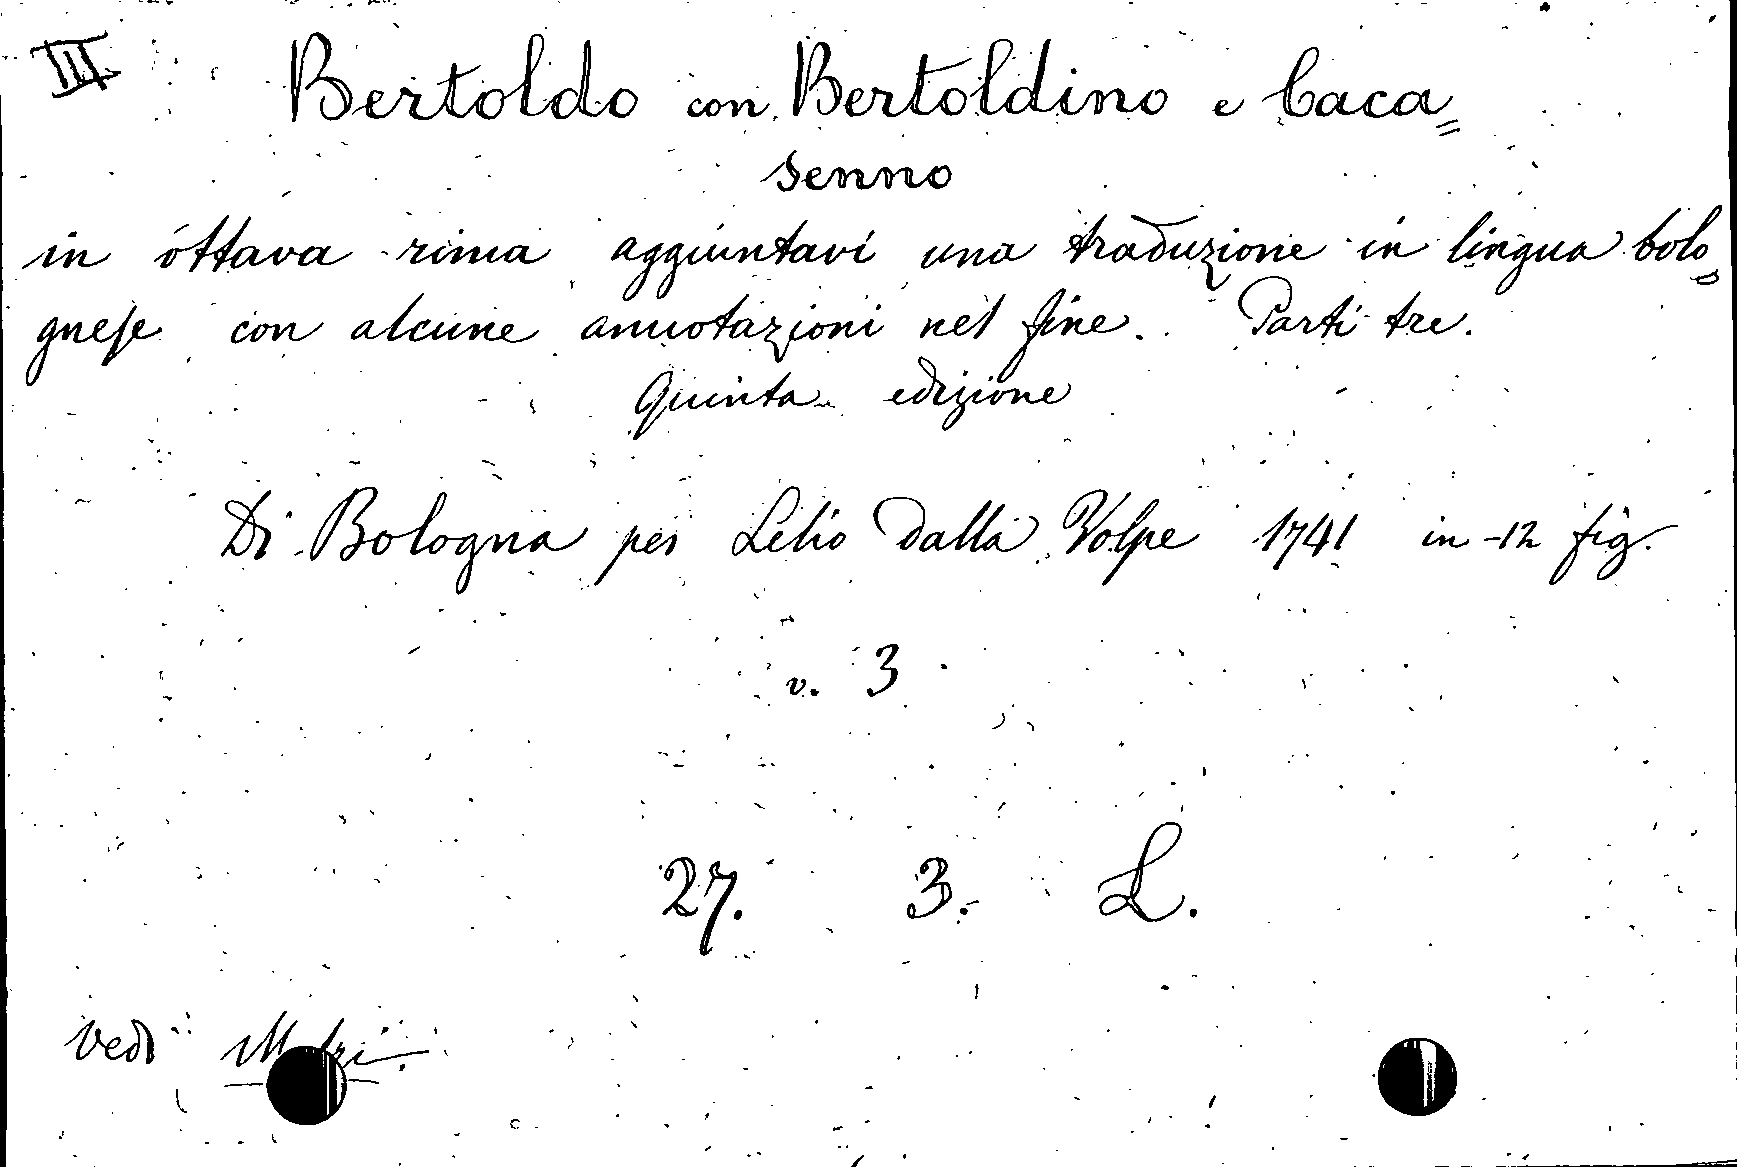 III Bertoldo con Bertoldino e Caca=
senno
in ottava rima aggiuntavi una traduzione in lingua bolo=
gnese con alcune annotazioni nel fine. Parti tre.
Quinta edizione
Di Bologna per Lelio dalla Volpe 1741 in-12 fig.
v. 3
27. 3. L.
Vedi